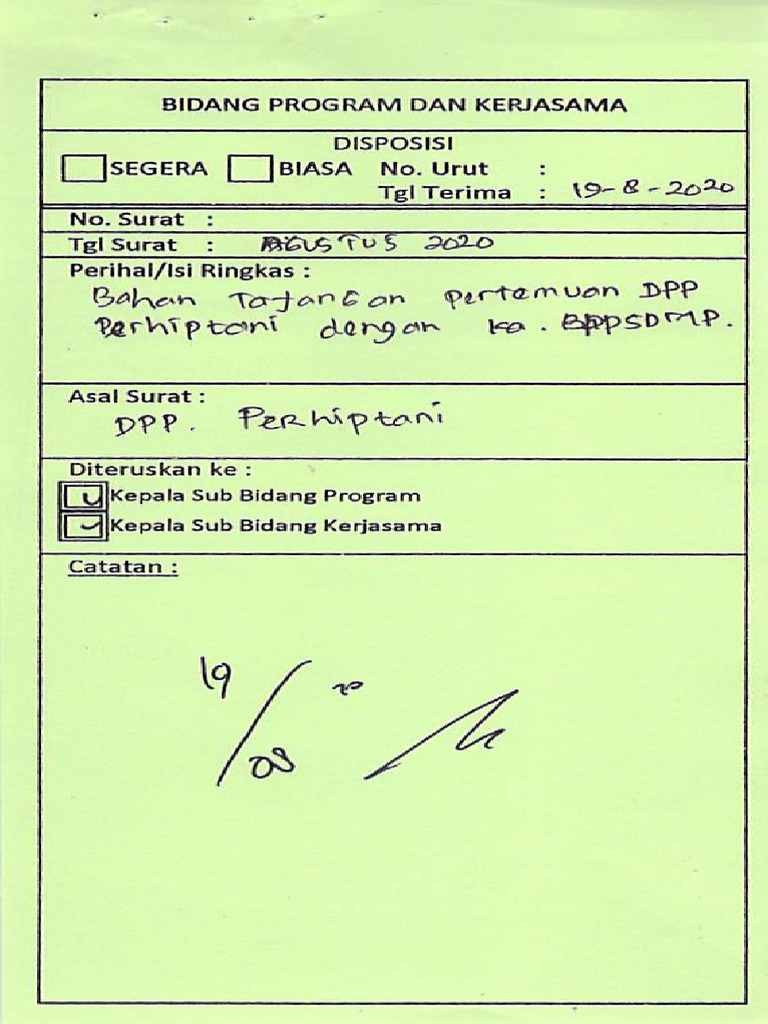 BIDANG PROGRAM DAN KERJASAMA
DISPOSISI
SEGERA BIASA No. Urut :
Tgl Terima : 19-8-2020
No. Surat :
Tgl Surat : AGUSTUS 2020
Perihal/Isi Ringkas :
Bahan Tayangan Pertemuan DPP
Perhiptani dengan ka. BPPSDMP.
Asal Surat :
DPP. Perhiptani
Diteruskan ke :
Kepala Sub Bidang Program
Kepala Sub Bidang Kerjasama
Catatan :
19/08 20